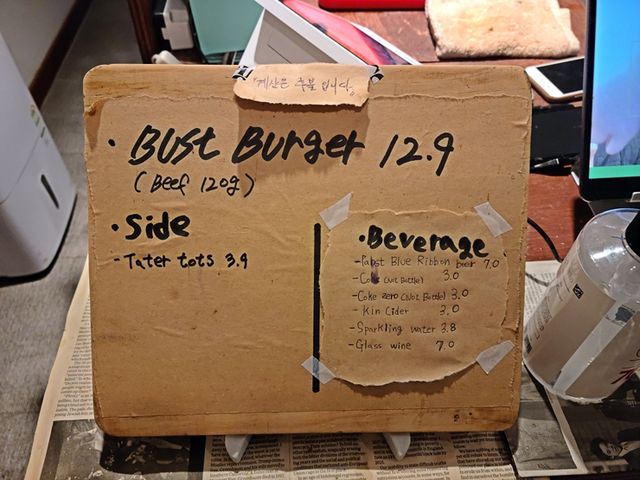 계산은 후불 입니다.
· BUST BURGER 12.9
(Beef 120g)
· Side
- Tater tots 3.9
· Beverage
- Pabst Blue Ribbon beer 7.0
- Coke (Not Bottle) 3.0
- Coke zero (Not Bottle) 3.0
- Kin Cider 3.0
- Sparkling water 3.8
- Glass wine 7.0